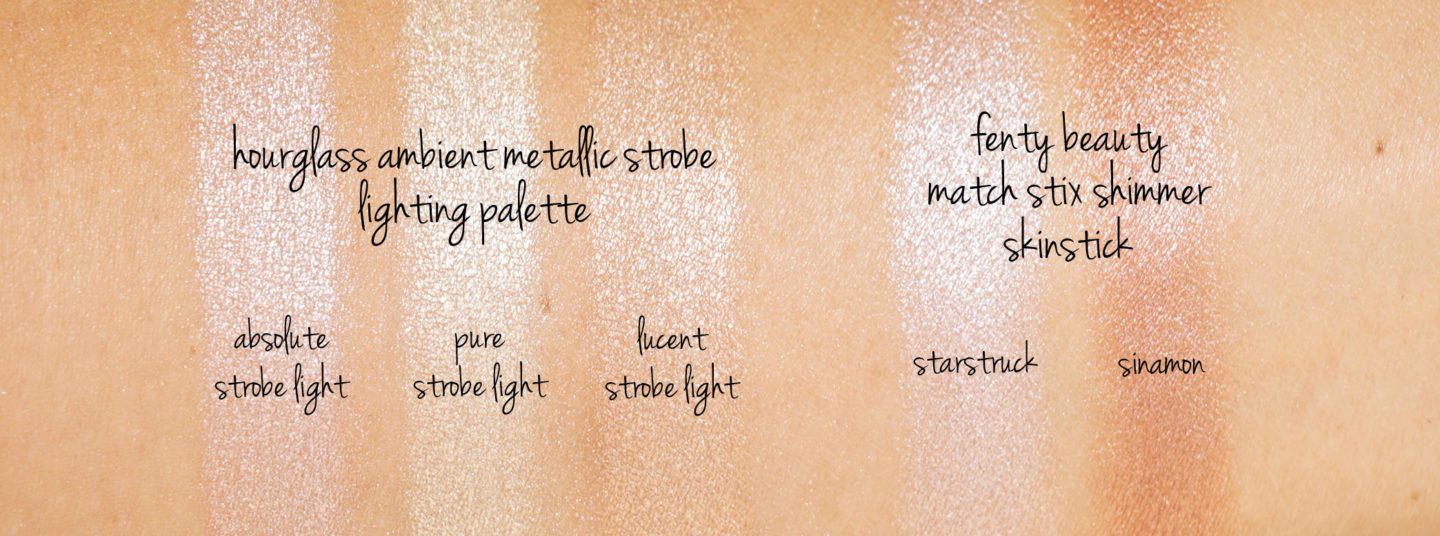 hourglass ambient metallic strobe
lighting palette
absolute
strobe light
pure
strobe light
lucent
strobe light
fenty beauty
match stix shimmer
skinstick
starstruck
sinamon